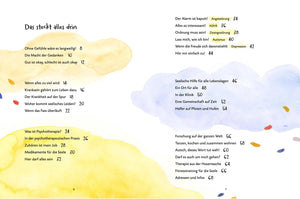 Das steckt alles drin
Ohne Gefühle wäre es langweilig! 8
Die Macht der Gedanken 10
Gut ist okay, schlecht ist auch okay 12
Wenn alles zu viel wird 14
Kranksein gehört zum Leben dazu 16
Der Krankheit auf der Spur 18
Woher kommen seelische Leiden? 20
Wenn das Fass überläuft 22
Was ist Psychotherapie? 24
In der psychotherapeutischen Praxis 26
Zuhören ist mein Job 28
Medikamente für die Seele 30
Hier darf alles sein 32
Der Alarm ist kaputt! Angststörung 34
Essen ist interessant! ADHS 36
Ordnung muss sein! Zwangsstörung 38
Lass mich, wie ich bin! Autismus 40
Wenn die Freude sich davonstiehlt Depression 42
Mir ist einfach zu 44
Seelische Hilfe für alle Lebenslagen 46
Ein Ort für alle 48
In der Klinik 50
Eine Gemeinschaft auf Zeit 52
Mit Pfoten und Hufen 54
Forschung auf der ganzen Welt 56
Tanzen, kochen und zusammen wohnen 58
Autsch, dieses Wort tut weh! 60
Darf es auch um mich gehen? 62
Therapie aus der Hosentasche 64
Fitnesstraining für die Seele 66
Adressen und Infos 68